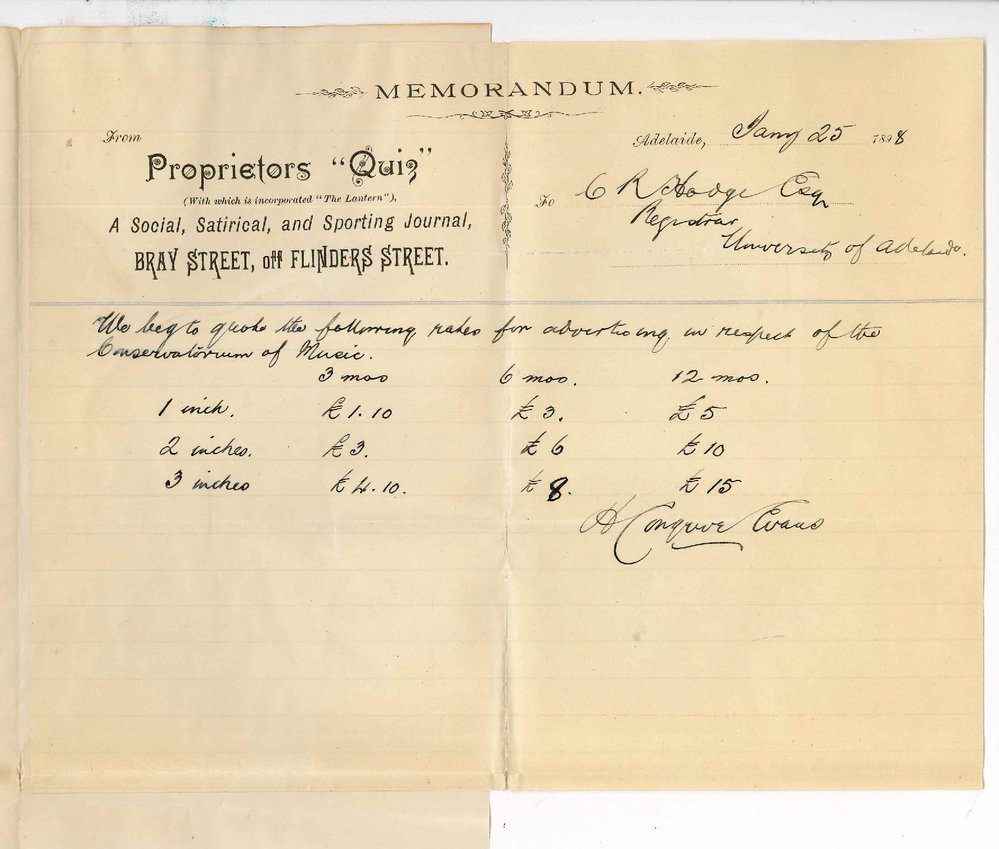 MEMORANDUM.
From
Proprietors "Quiz"
(With which is incorporated "The Lantern"),
A Social, Satirical, and Sporting Journal,
BRAY STREET, off FLINDERS STREET.
Adelaide, Jany 25 1898
To C R Hodge Esq
Registrar
University of Adelaide.
We beg to quote the following rates for advertising in respect of the
Conservatorium of Music.
3 mos 6 mos. 12 mos.
1 inch. £1.10 £3. £5
2 inches. £3. £6 £10
3 inches £4.10. £8. £15
H Congreve Evans